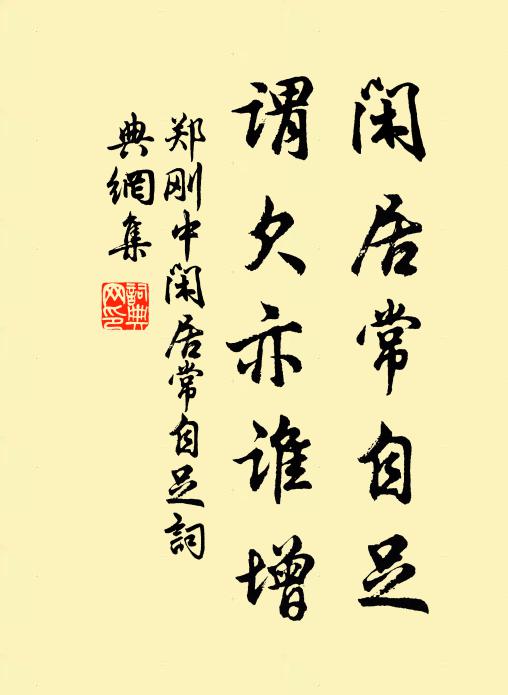 闲居常自足
谓欠亦谁增
郑刚中闲居常自足词
典網集
詞典
网印